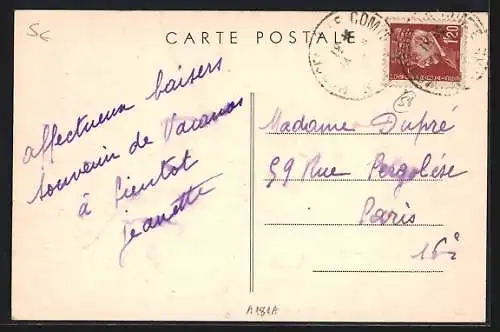 5€
CARTE POSTALE
1F20
affectueux baisers
souvenir de Vacances
à bientot
jeanette
Madame Dupré
59 Rue Pergolèse
Paris
16è
A181A